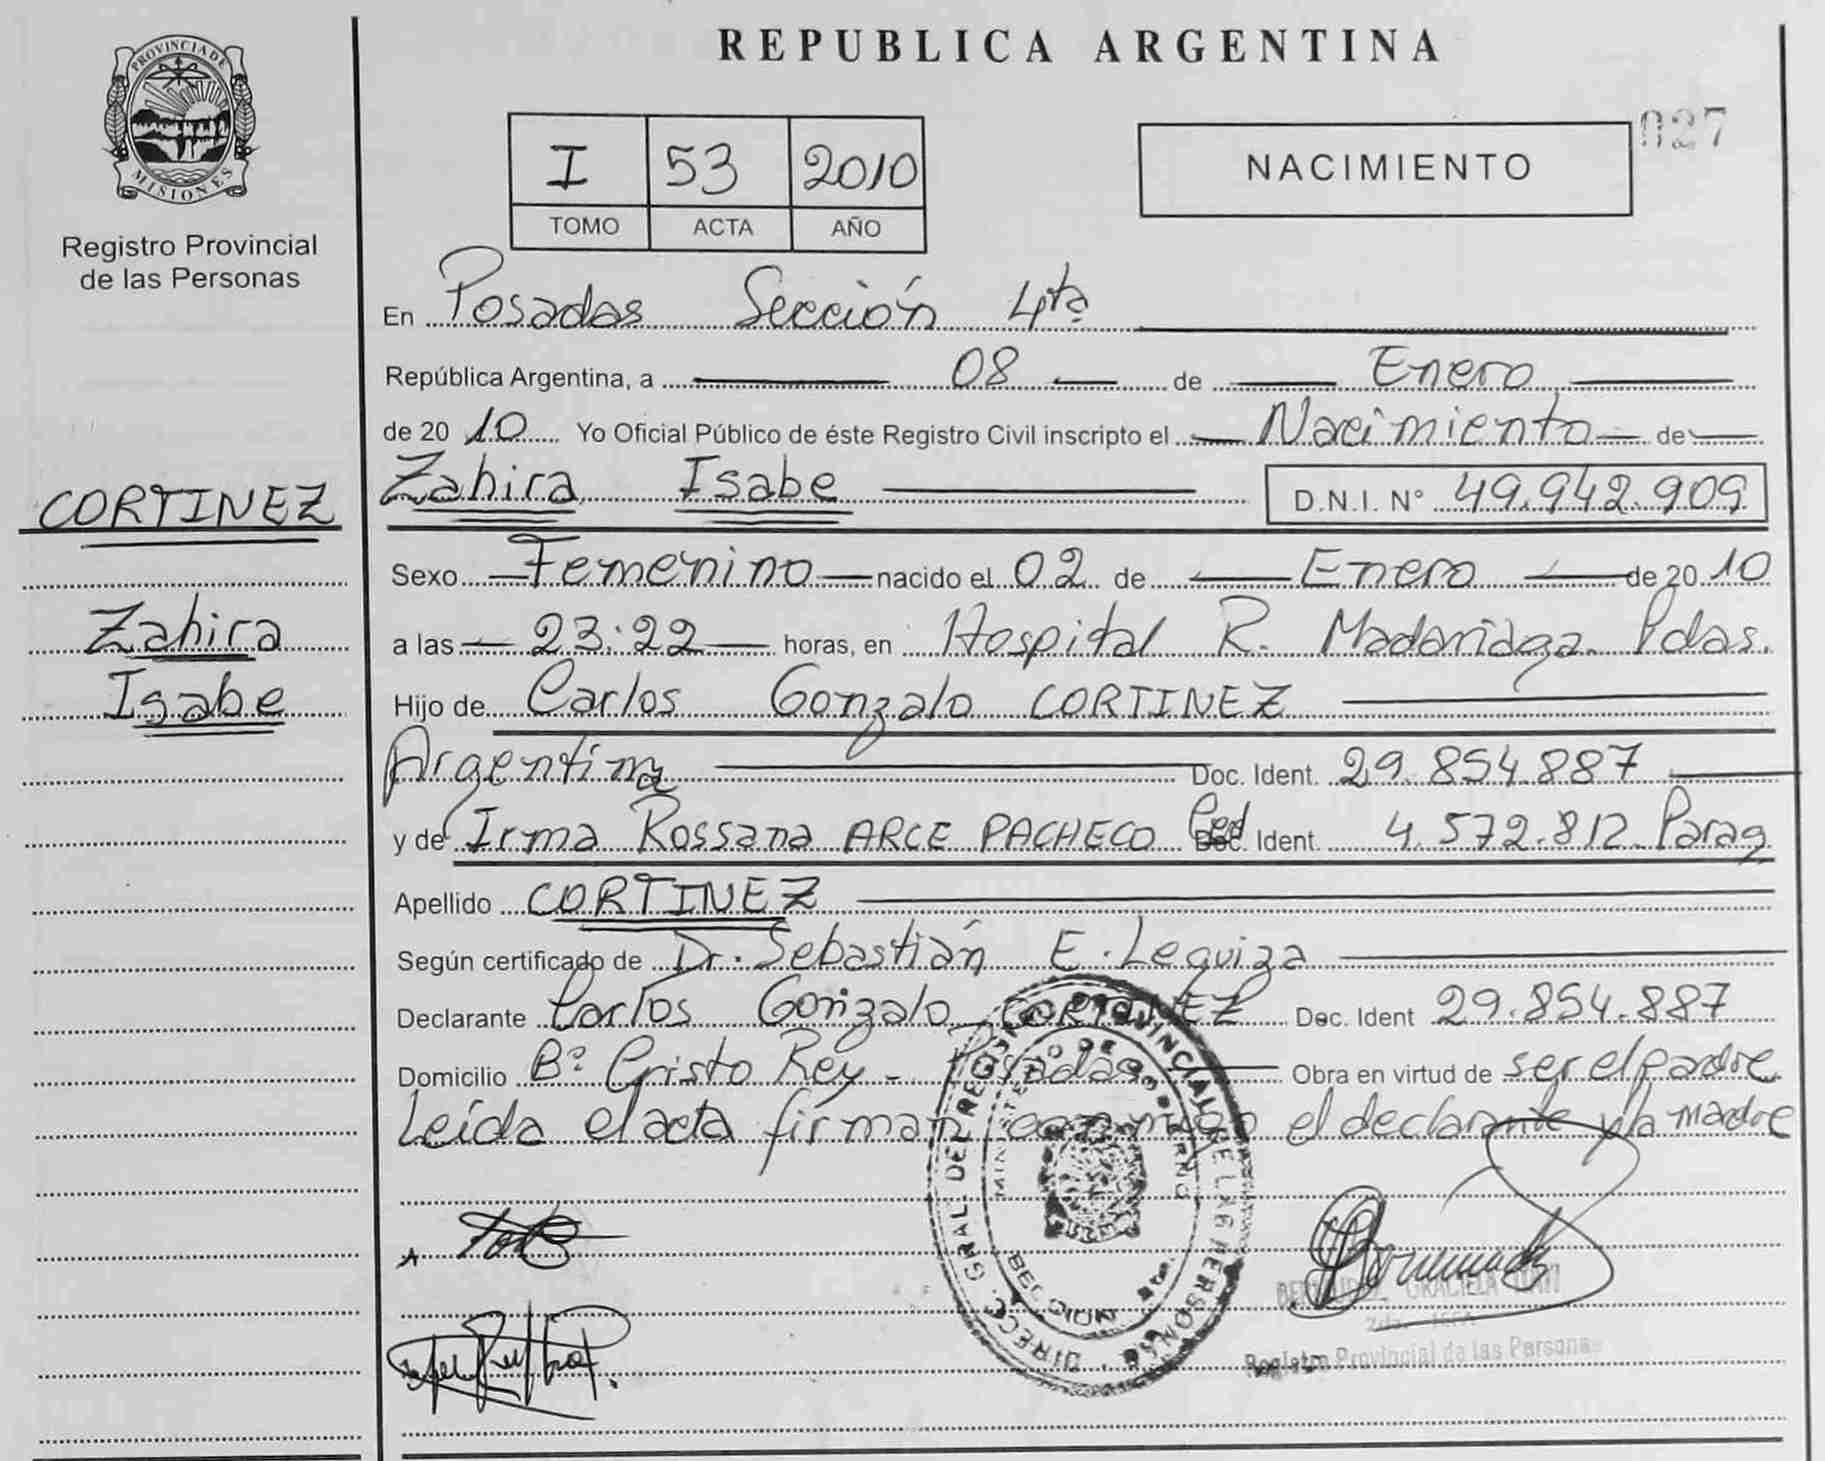 REPUBLICA ARGENTINA
PROVINCIA DE
MISIONES
Registro Provincial
de las Personas
I 53 2010
TOMO ACTA AÑO
NACIMIENTO
027
En Posadas Sección 4ta
República Argentina, a 08 de Enero
de 20 10 Yo Oficial Público de éste Registro Civil inscripto el Nacimiento de
CORTINEZ
Zahira
Isabe
Zahira Isabe D.N.I. N° 49.942.909
Sexo Femenino nacido el 02 de Enero de 20 10
a las 23:22 horas, en Hospital R. Madariaga. Pdas.
Hijo de Carlos Gonzalo CORTINEZ
Argentina Doc. Ident. 29.854.887
y de Irma Rossana ARCE PACHECO Ced Ident. 4.572.812 Parag
Apellido CORTINEZ
Según certificado de Dr. Sebastián E. Leguiza
Declarante Carlos Gonzalo CORTINEZ Doc. Ident 29.854.887
Domicilio B° Cristo Rey - Posadas Obra en virtud de ser el padre
Leída el acta firman conmigo el declarante y la madre
DIRECC. GRAL. DEL REGISTRO PROVINCIAL DE LAS PERSONAS
GRACIELA
Registro Provincial de las Personas